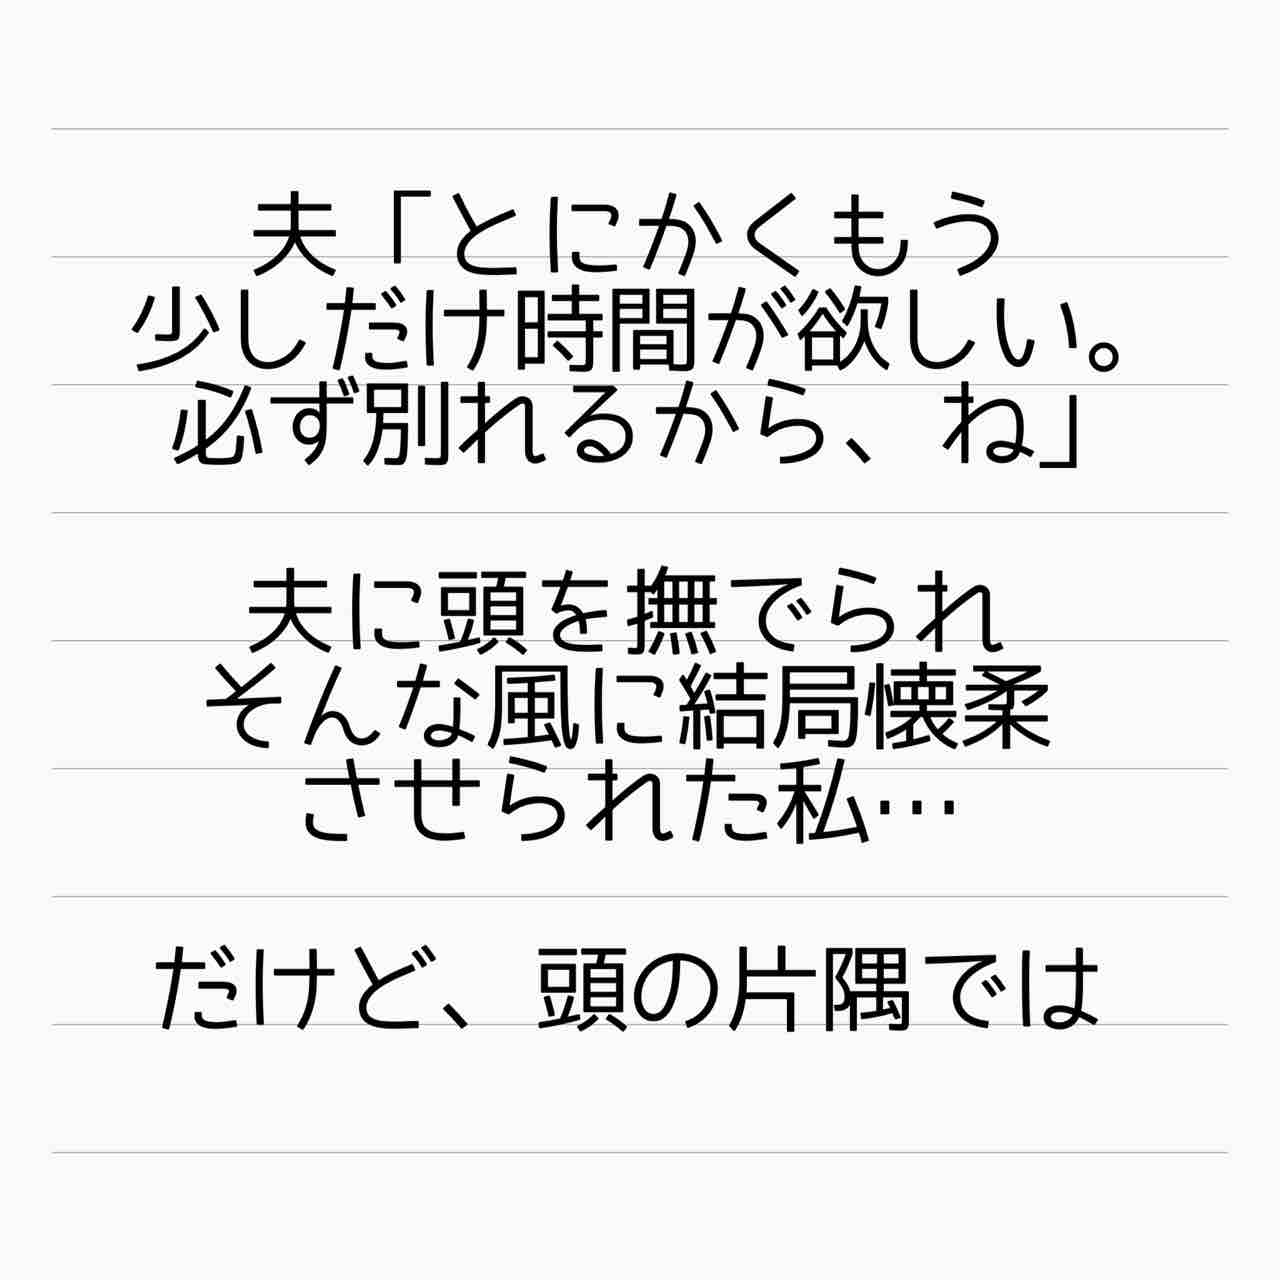 夫「とにかくもう
少しだけ時間が欲しい。
必ず別れるから、ね」
夫に頭を撫でられ
そんな風に結局懐柔
させられた私…
だけど、頭の片隅では